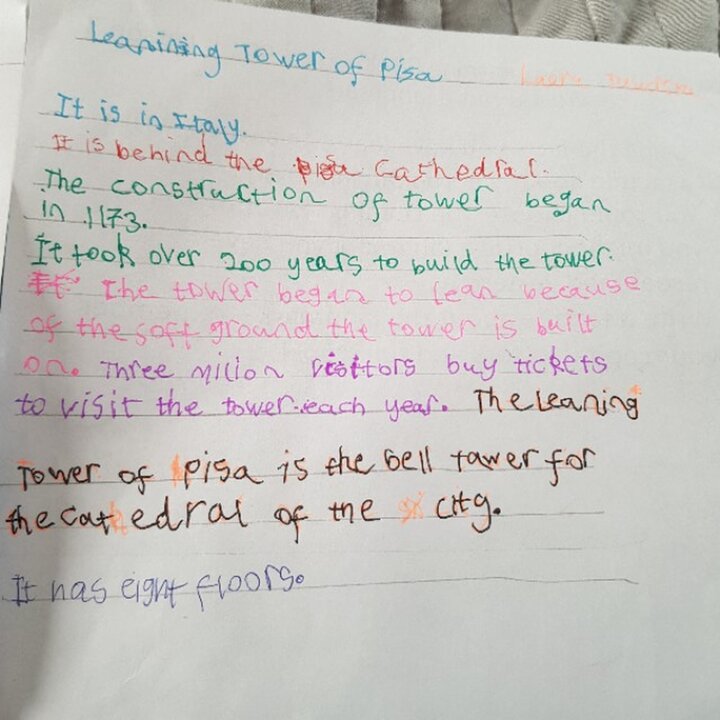 Leanining Tower of Pisa
It is in Italy.
It is behind the pisa Cathedral.
The construction of tower began
in 1173.
It took over 200 years to build the tower.
The tower began to lean because
of the soft ground the tower is built
on. Three milion visitors buy tickets
to visit the tower each year. The Leaning
Tower of pisa is the bell tawer for
the cathedral of the city.
It has eight floors.